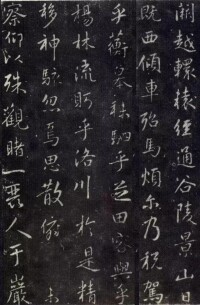 闕越轘轅經通谷陵景山日
既西傾車殆馬煩尔乃稅駕
乎蘅皋秣駟乎芝田容與乎
楊林流眄乎洛川於是精
移神駭忽焉思散俯未
察仰以殊觀睹一麗人于巖